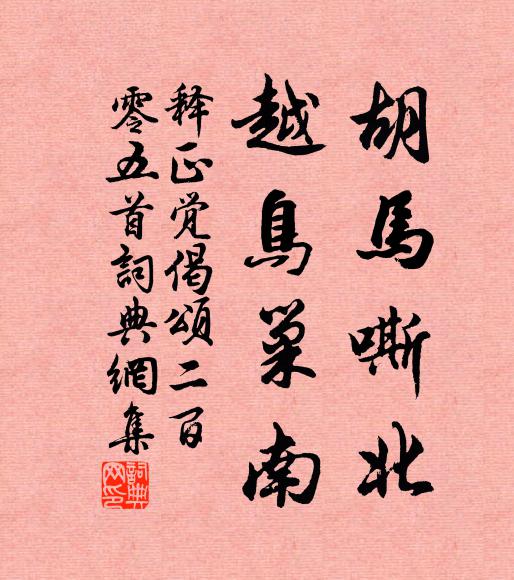 胡馬嘶北
越鳥巢南
释正觉偈頌二百
零五首詞典網集
詞典網印